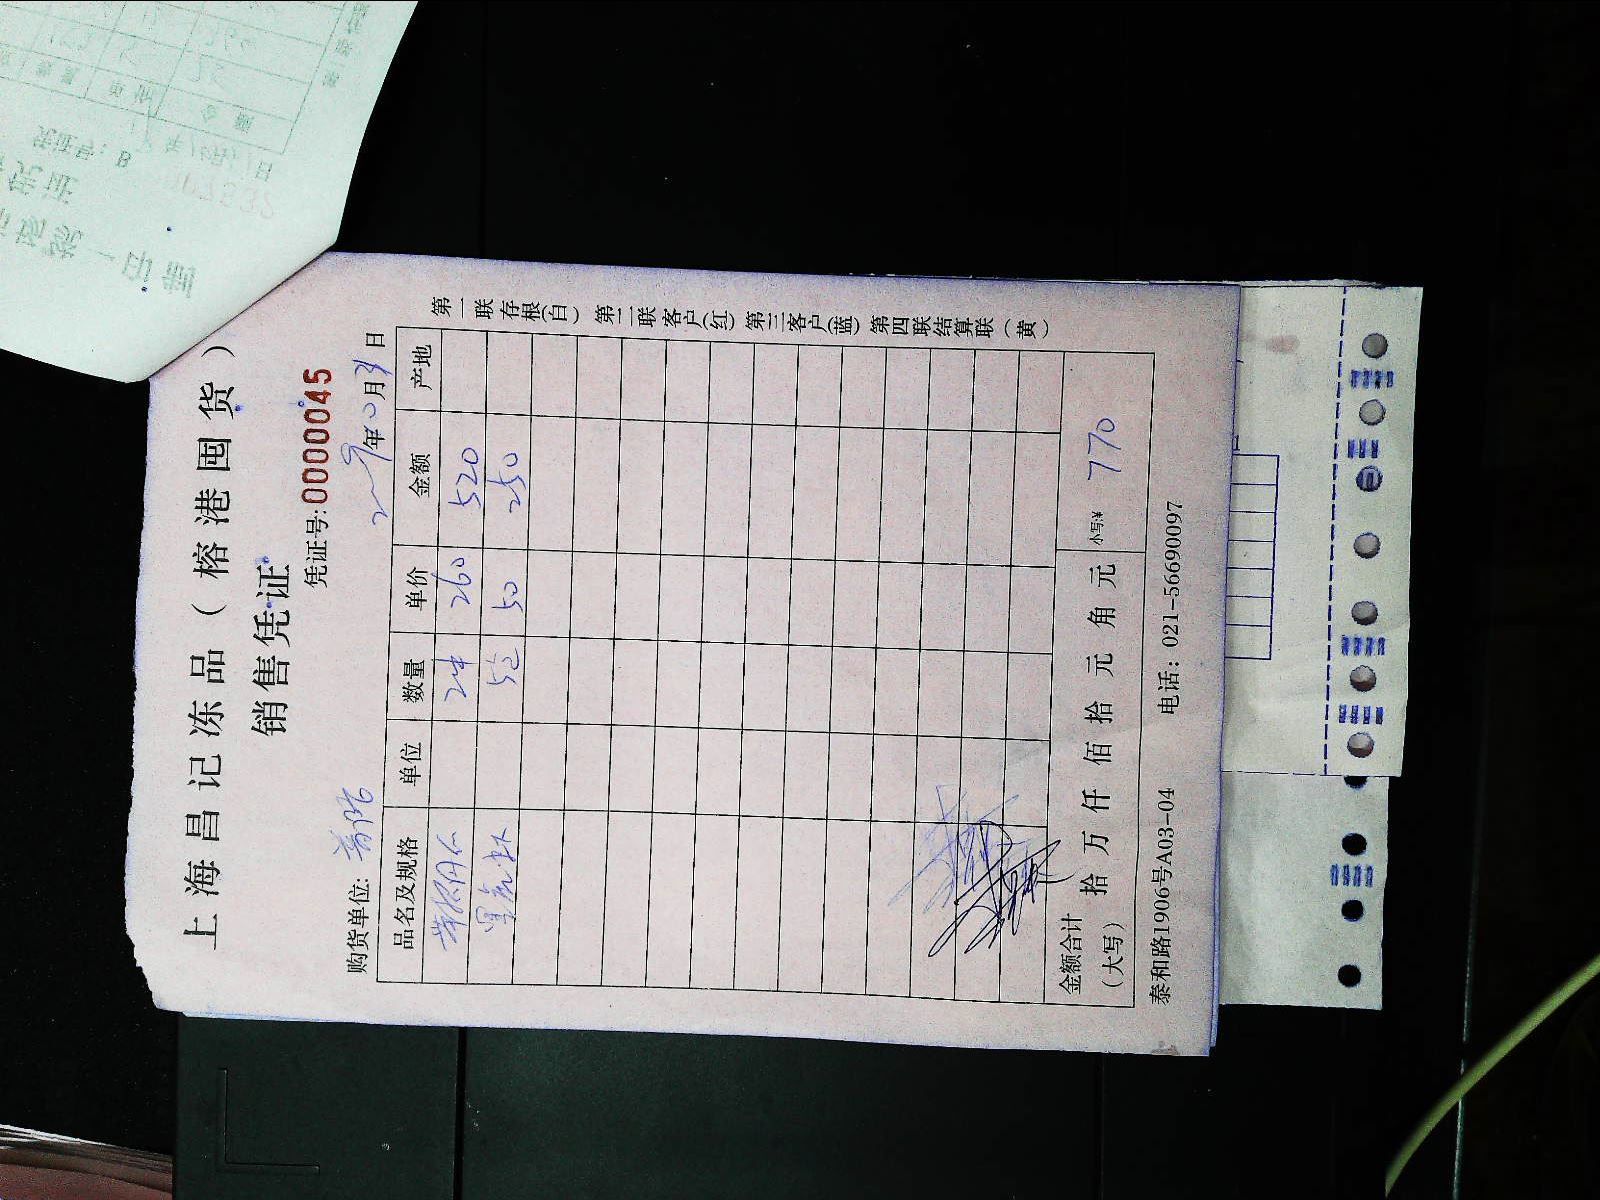 上海昌记冻品（榕港囤货）
销售凭证
凭证号:0000045
购货单位: 年 0月 日
品名及规格 单位 数量 单价 金额 产地
2件 260 520
黑虎虾 5包 50 250
金额合计（大写） 拾 万 仟 佰 拾 元 角 元 小写:¥ 770
泰和路1906号A03-04 电话: 021-56690097
第一联存根(白) 第二联客户(红) 第三客户(蓝) 第四联结算联（黄）